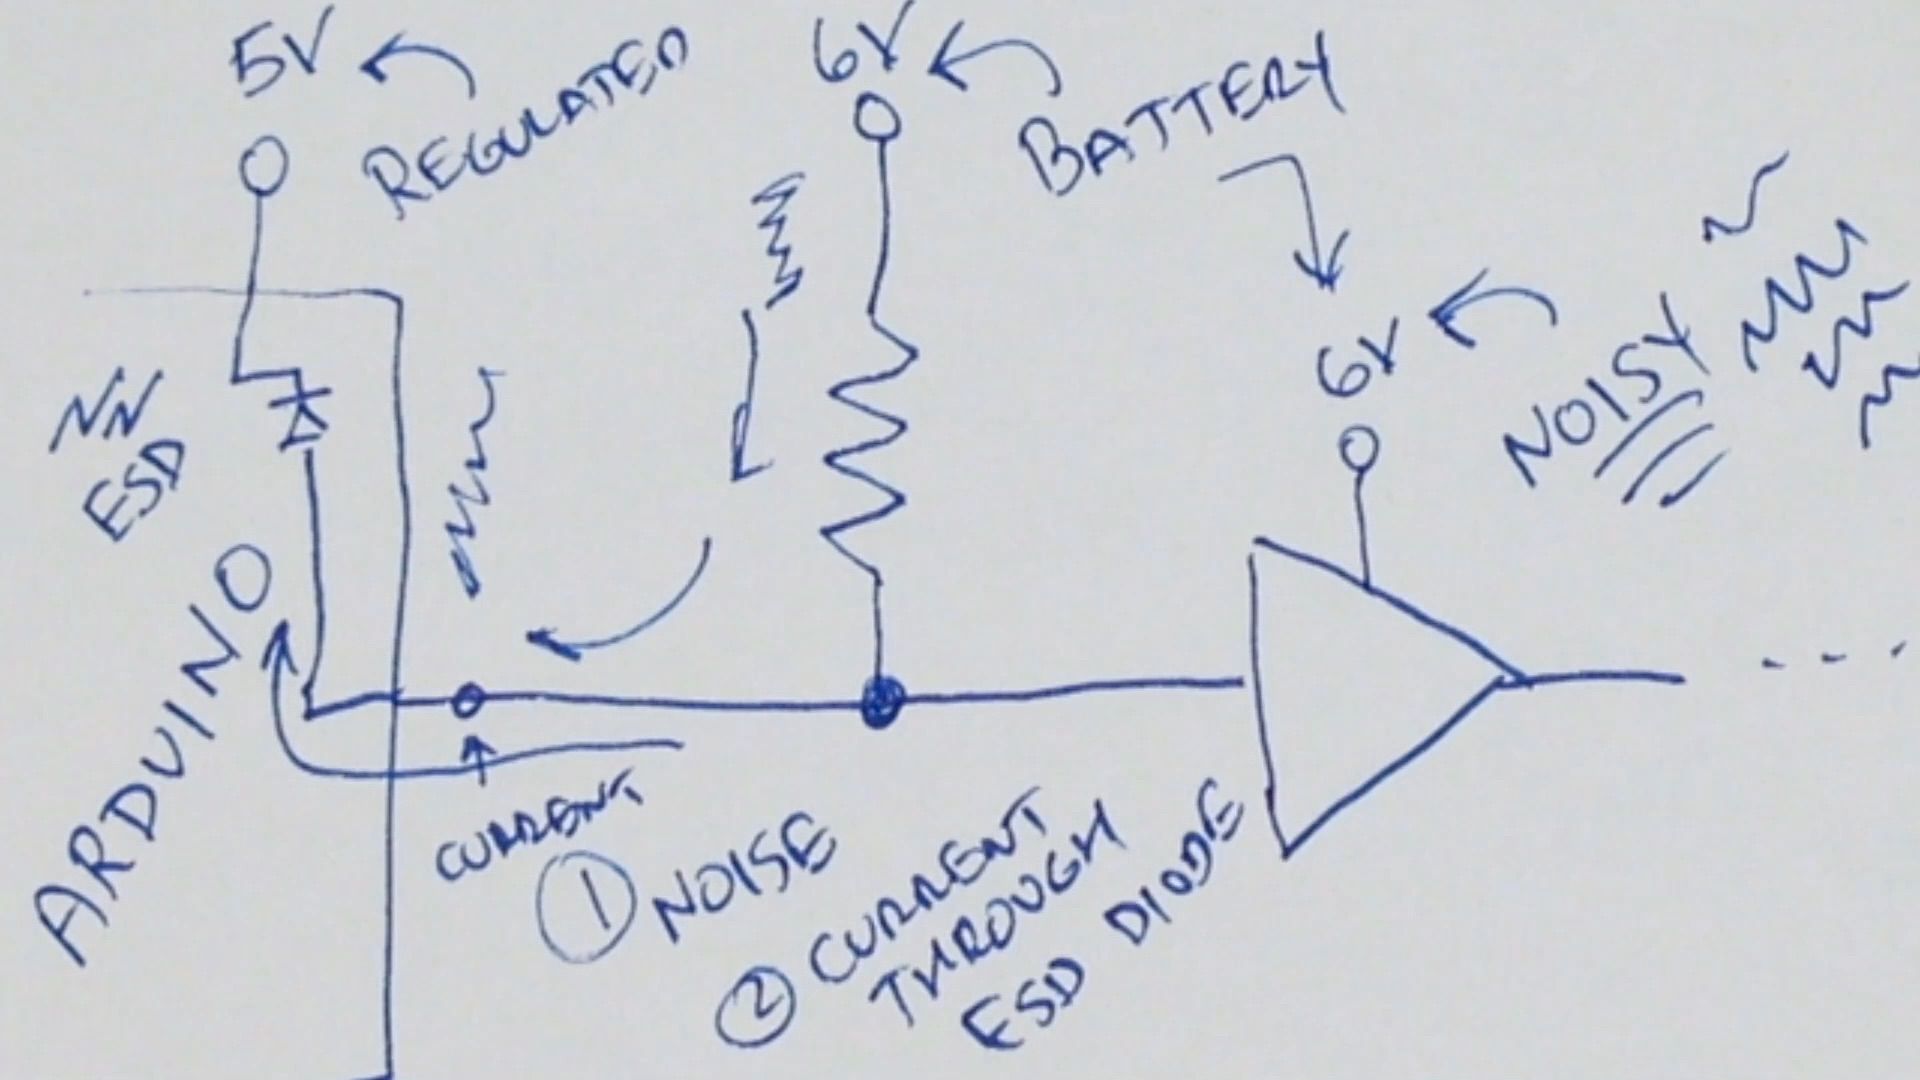 5V
REGULATED
6V
BATTERY
6V
NOISY
ESD
ARDUINO
CURRENT
1 NOISE
2 CURRENT
THROUGH
ESD DIODE